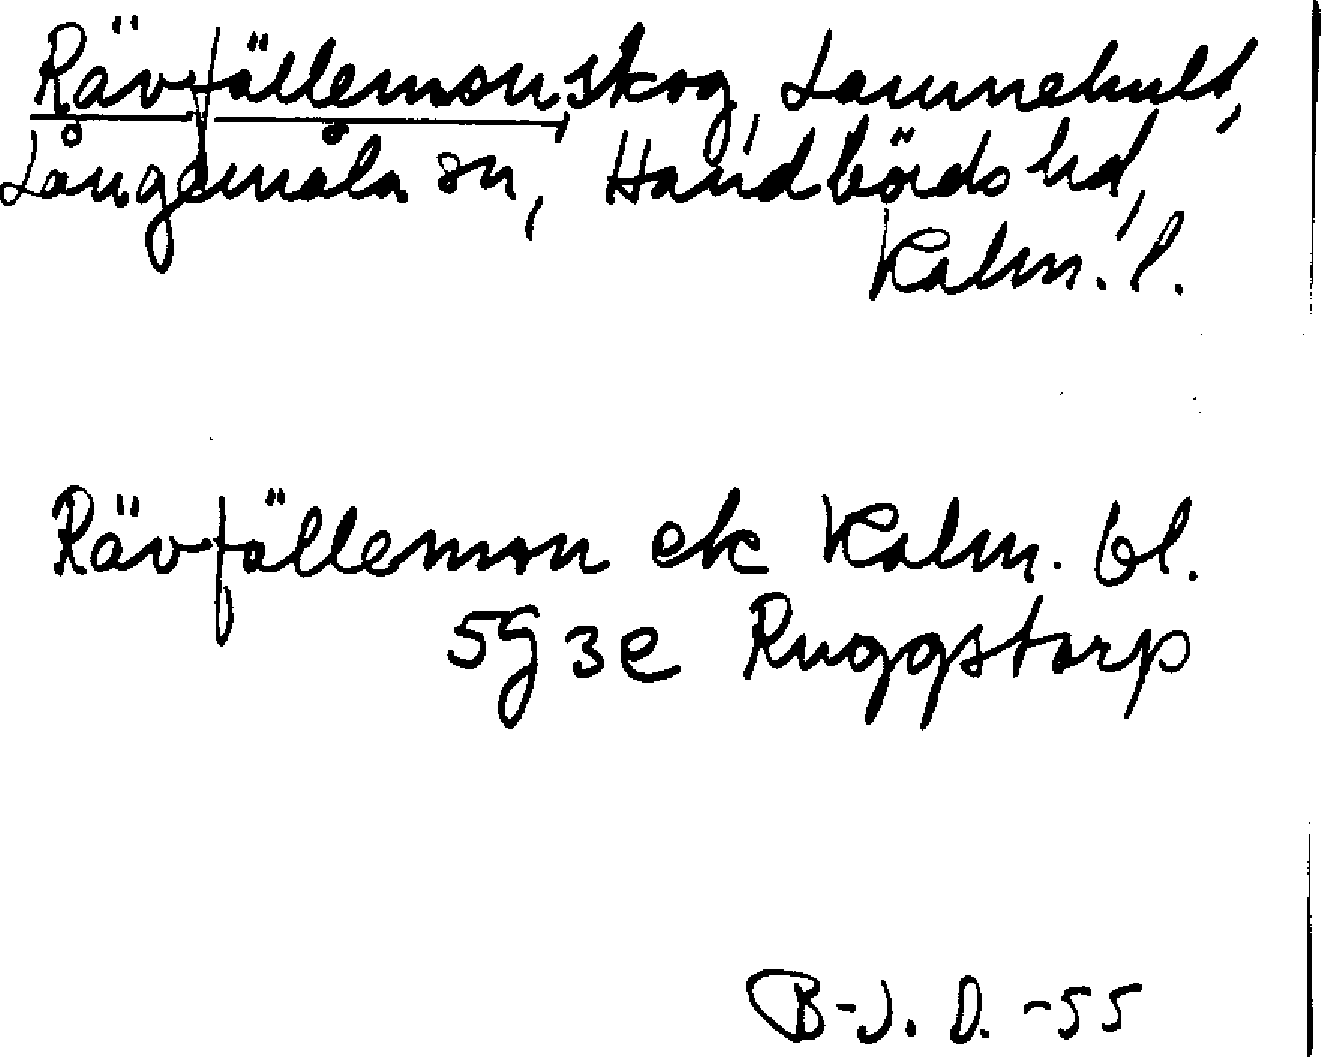 Rävfällemon, skog, Lannehult,
Långemåla sn, Handbörds hd,
Kalm. l.
Rävfällemon ek Kalm. bl.
5G 3e Ruggstorp
B-J. D. -55